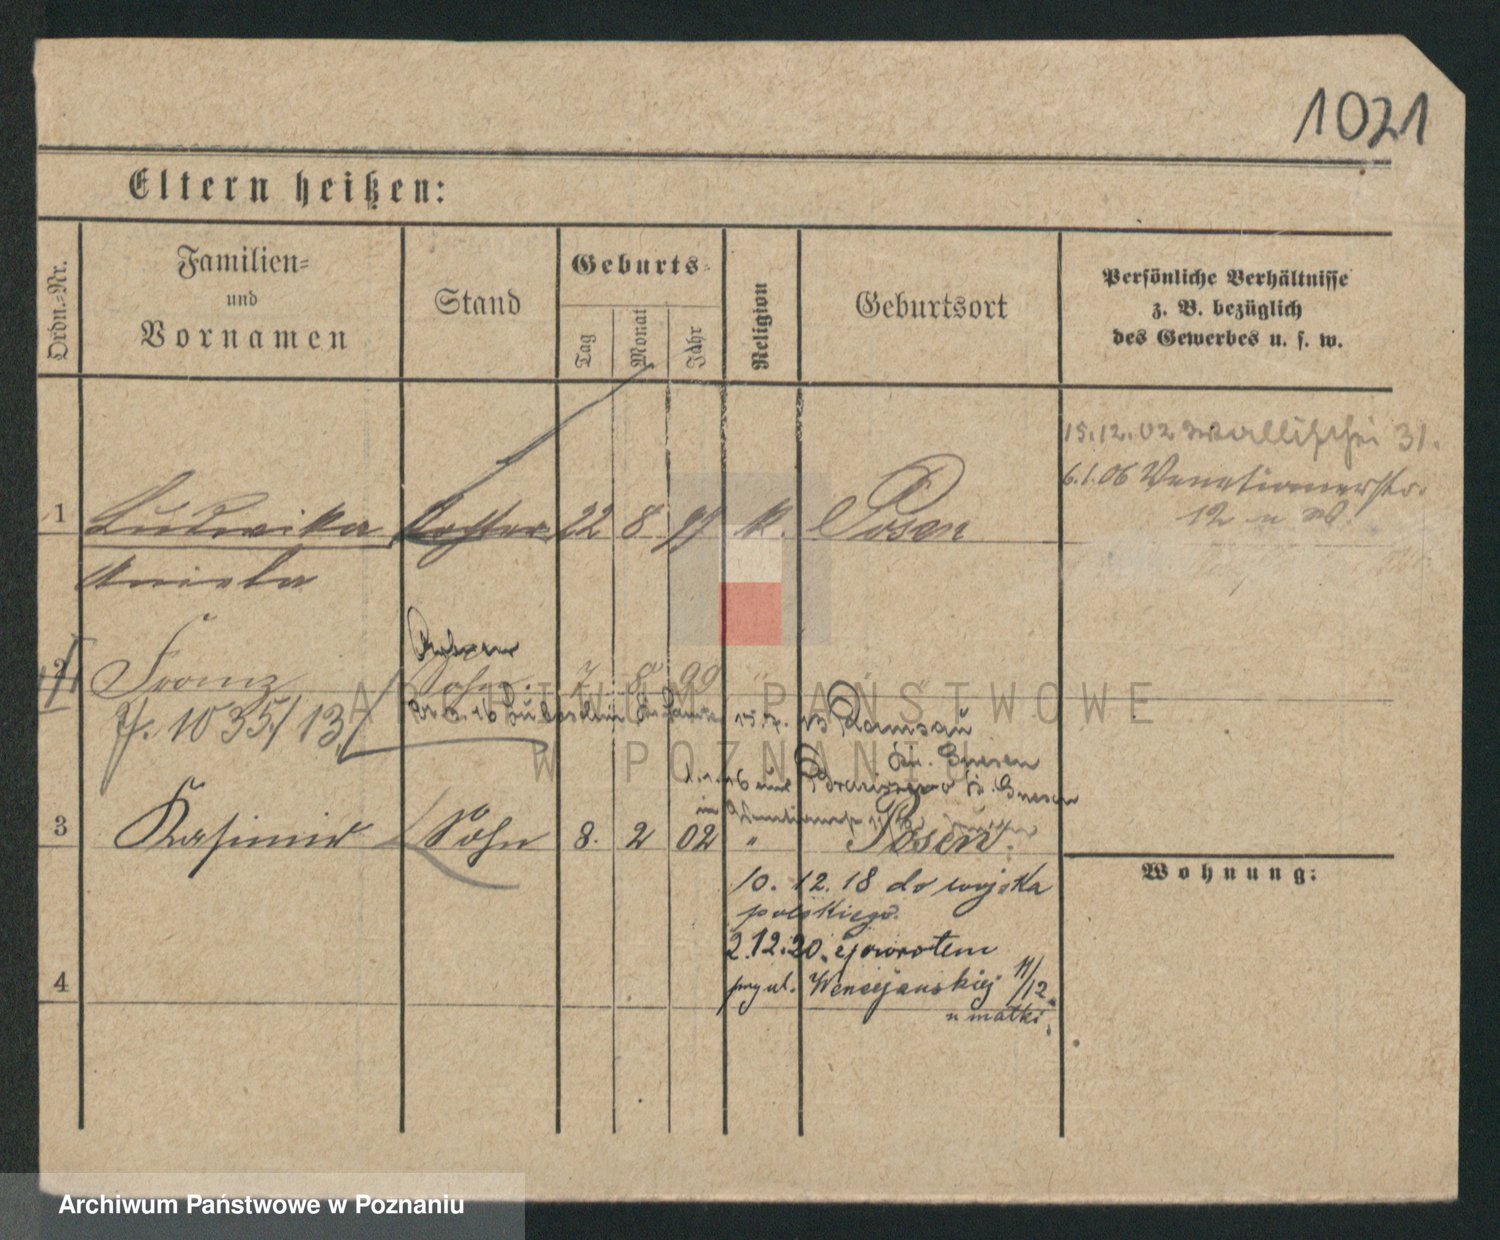 1021
Eltern heißen:
Ordn.-Nr.
Familien-
und
Vornamen
Stand
Geburts-
Tag
Monat
Jahr
Religion
Geburtsort
Persönliche Verhältnisse
z. B. bezüglich
des Gewerbes u. s. w.
15.12.02 Wallischei 31.
6.1.06 Venetianerstr.
12
1 Ludwika Tochter 22 8 97 k. Posen
Aniela
2 Franz Sohn. 7 8 99 "
J. 1035/13
Ramsau
Kr. Gnesen
Kr. Gnesen
3 Kasimir Sohn 8. 2 02 " Posen.
Wohnung:
10. 12. 18 do wojska
polskiego.
2.12.20. z powrotem
4
przy ul. Wenecjańskiej 11/12
u matki
ARCHIWUM PAŃSTWOWE
W POZNANIU
Archiwum Państwowe w Poznaniu